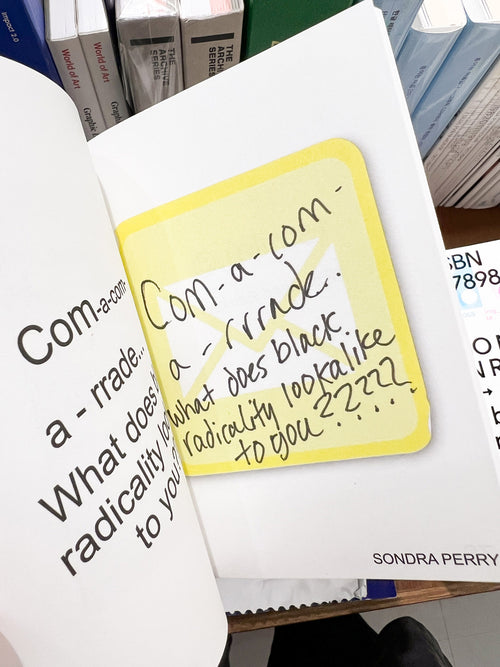 impact 2.0
World of Art
World of Art
Graphic
THE
ARCHIVE
SERIES
THE
ARCHIVE
SERIES
Com-a-com-
a - rrade...
What does
radicality
to you
Com-a-com-
a - rrrade.
what does black.
radicality lookalike
to you ?????
SONDRA PERRY
SBN
7898